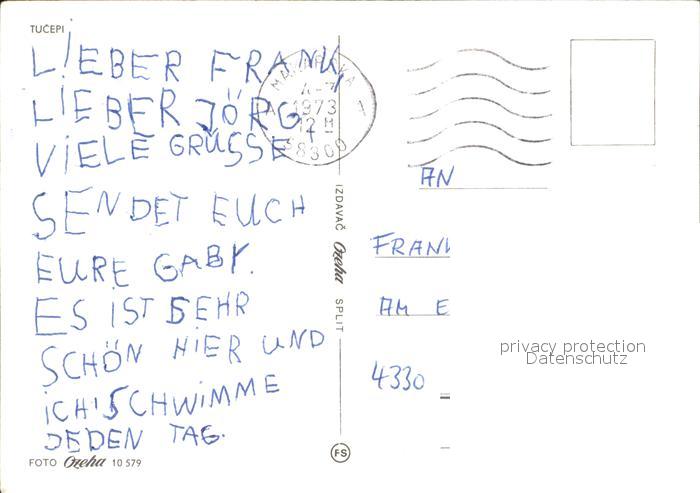 TUČEPI
LIEBER FRANK,
LIEBER JÖRG,
VIELE GRÜSSE
SENDET EUCH
EURE GABY.
ES IST SEHR
SCHÖN HIER UND
ICH SCHWIMME
JEDEN TAG.
FOTO Ozeha 10 579
IZDAVAČ Ozeha SPLIT
FS
1973
12 H
58300
AN
FRAN
AM E
4330
privacy protection
Datenschutz